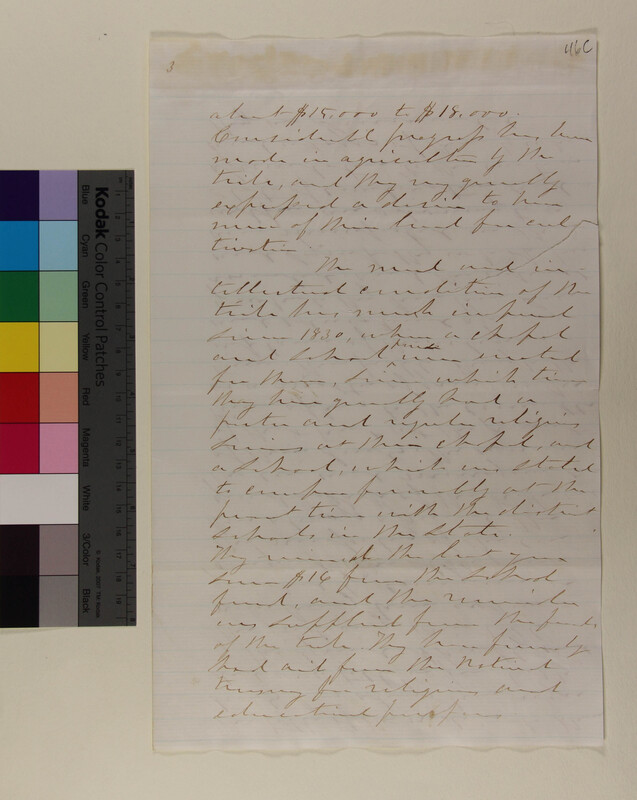 46C
3
about $15.000 to $18.000.
Considerable progress has been
made in agriculture by the
tribe, and they very generally
expressed a desire to have
more of their land for cul-
tivation.
The moral and in-
tellectual condition of the
tribe has much improved
since 1830, when a chapel
and school house were erected
for them, since which time
they have generally had a
pastor and regular religious
services at their chapel, and
a school, which was stated
to compare favorably at the
present time with the district
schools in the State.
They received the last year
some $16 from the School
fund, and the remainder
was supplied from the funds
of the tribe. They have formerly
had aid from the National
treasury for religious and
educational purposes
Kodak
Color Control Patches
Blue
Cyan
Green
Yellow
Red
Magenta
White
3/Color
Black